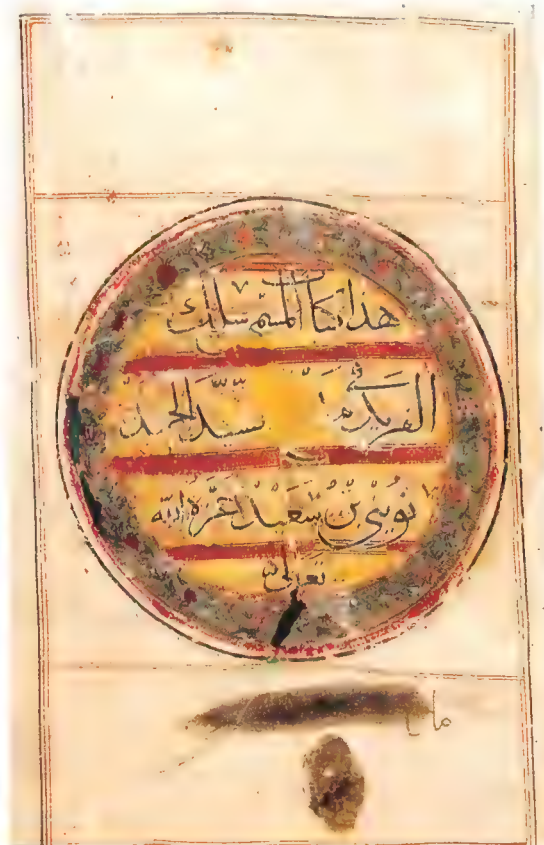 هذا كتاب المسمى سلك
الفريد سيد الحميد
ثويني بن سعيد اعزه الله
تعالى